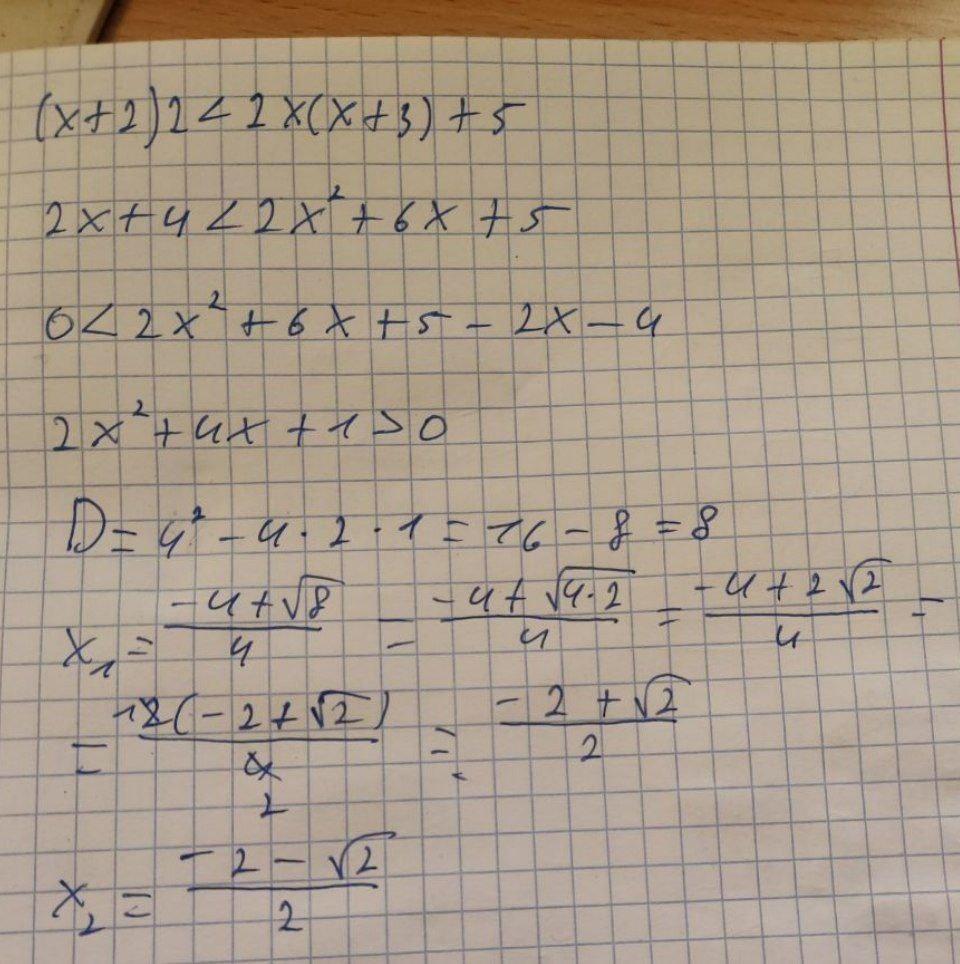 (x+2)2<2x(x+3)+5
2x+4<2x²+6x+5
0<2x²+6x+5-2x-4
2x²+4x+1>0
D=4²-4·2·1=16-8=8
x₁=(-4+√8)/4=(-4+√(4·2))/4=(-4+2√2)/4=
=12(-2+√2)/4 2=(-2+√2)/2
x₂=(-2-√2)/2